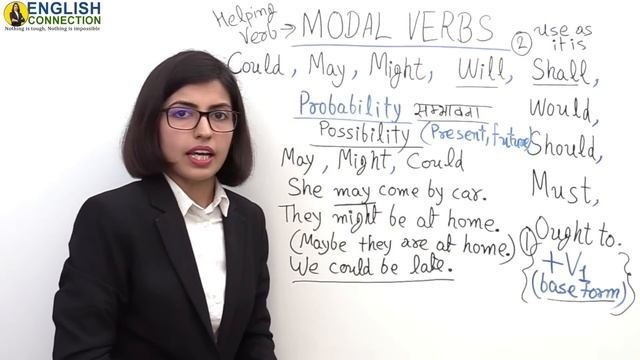 ENGLISH
CONNECTION
Nothing is tough, Nothing is impossible
Helping Verb → MODAL VERBS
② use as it is
Could, May, Might, Will, Shall,
Would,
Should,
Must,
Ought to.
Probability सम्भावना
Possibility (Present, future)
May, Might, Could
She may come by car.
They might be at home.
(Maybe they are at home.)
We could be late.
① +V₁
(base form)